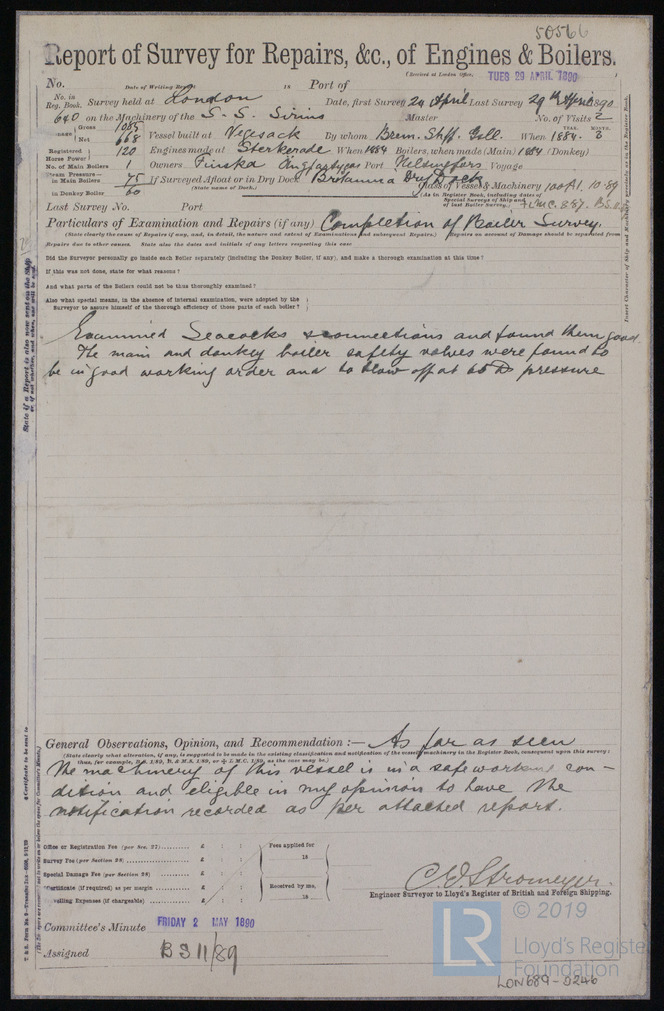 50566
Report of Survey for Repairs, &c., of Engines & Boilers.
(Received at London Office, TUES 29 APRIL 1890
No. Date of Writing Report 18 Port of
No. in Reg. Book. Survey held at London Date, first Survey 24 April Last Survey 29th April 1890
640 on the Machinery of the S. S. Sirius Master No. of Visits 2
Gross 1085
Net 668 Vessel built at Vegesack By whom Brem. Shff. Gell. When YEAR. 1884. MONTH. 3
Registered Horse Power 120 Engines made at Sterkrade When 1884 Boilers, when made (Main) 1884 (Donkey)
No. of Main Boilers 1 Owners Finska Port Helsingfors Voyage
Steam Pressure— in Main Boilers 75 If Surveyed Afloat or in Dry Dock Britannia Dry Dock Class of Vessel & Machinery 100A1. 10.89
in Donkey Boiler 60 (State name of Dock.) (As in Register Book, including dates of Special Surveys of Ship and of last Boiler Survey.
Last Survey No. Port
Particulars of Examination and Repairs (if any) Completion of Boiler Survey.
(State clearly the cause of Repairs if any, and, in detail, the nature and extent of Examinations and subsequent Repairs.) Repairs on account of Damage should be separated from
Repairs due to other causes. State also the dates and initials of any letters respecting this case
Did the Surveyor personally go inside each Boiler separately (including the Donkey Boiler, if any), and make a thorough examination at this time?
If this was not done, state for what reasons?
And what parts of the Boilers could not be thus thoroughly examined?
Also what special means, in the absence of internal examination, were adopted by the
Surveyor to assure himself of the thorough efficiency of those parts of each boiler?
Examined Seacocks & connections and found them good.
The main and donkey boiler safety valves were found to
be in good working order and to blow off at pressure
General Observations, Opinion, and Recommendation :— As far as seen
(State clearly what alteration, if any, is suggested to be made in the existing classification and notification of the vessel's machinery in the Register Book, consequent upon this survey;
the machinery of this vessel is in a safe working con-
dition and eligible in my opinion to have the
notification recorded as per attached report.
Office or Registration Fee (per Sec. 27) £ : : Fees applied for
Survey Fee (per Section 28) £ : : 18
Special Damage Fee (per Section 28) £ : :
Certificate (if required) as per margin £ : : Received by me,
Travelling Expenses (if chargeable) £ : : 18
C. E. Stromeyer.
Engineer Surveyor to Lloyd's Register of British and Foreign Shipping.
Committee's Minute FRIDAY 2 MAY 1890
Assigned BS 11/89
LR © 2019
Lloyd's Register
Foundation
LON689-0246
State if a Report is also now sent on the Ship